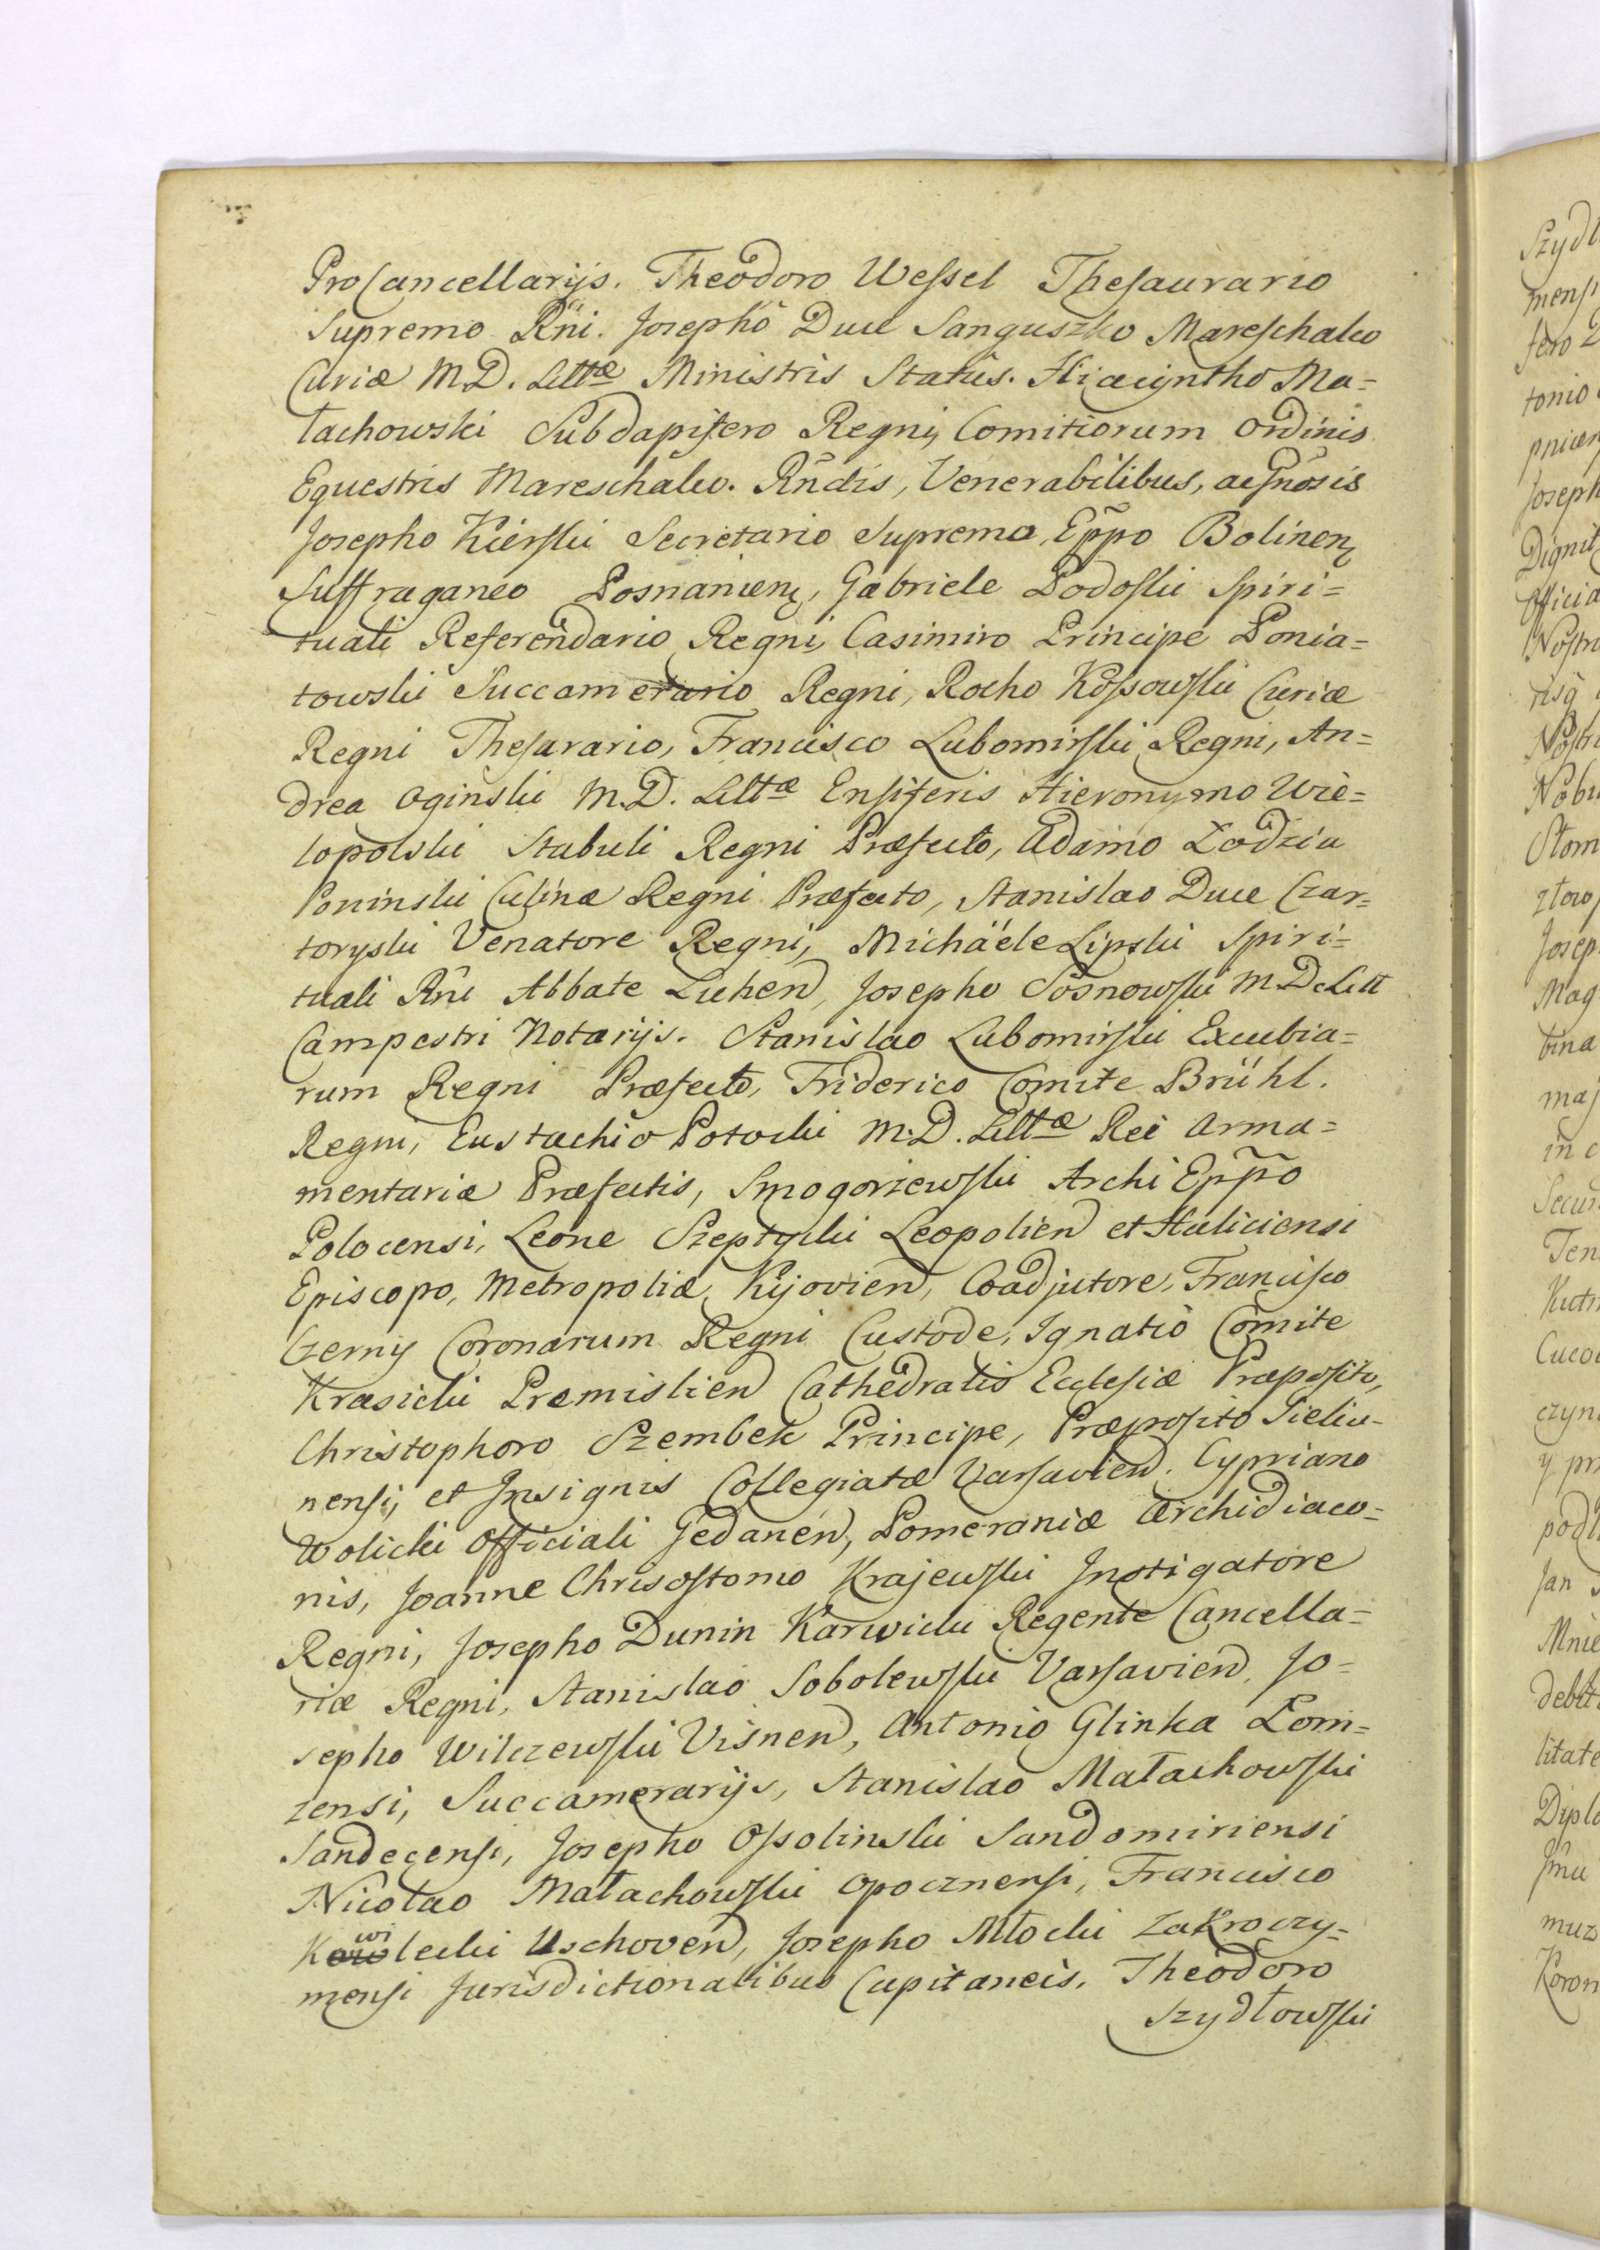 ProCancellarijs. Theodoro Wessel Thesaurario
Supremo Rñi. Josepho Duce Sanguszko Mareschalco
Curiæ M.D. Littæ Ministris Status. Hiacyntho Ma=
łachowski Subdapifero Regni, Comitiorum Ordinis
Equestris Mareschalco. Rñdis, Venerabilibus, ac Gñosis
Josepho Kierski Secretario Supremo, Eppo Bolinen,
Suffraganeo Posnanien, Gabriele Podoski Spiri=
tuali Referendario Regni, Casimiro Principe Ponia=
towski Succamerario Regni, Rocho Kossowski Curiæ
Regni Thesarario, Francisco Lubomirski Regni, An=
drea Oginski M.D. Littæ Ensiferis Hieronymo Wie=
lopolski Stabuli Regni Præfecto, Adamo Łodzia
Poninski Culinæ Regni Præfecto, Stanislao Duce Czar=
toryski Venatore Regni, Michaële Lipski Spiri=
tuali Rñi Abbate Luben, Josepho Sosnowski M.D. Litt
Campestri Notarijs. Stanislao Lubomirski Excubia=
rum Regni Præfecto, Friderico Comite Brühl.
Regni, Eustachio Potocki M.D. Littæ Rei Arma=
mentariæ Præfectis, Smogorzewski Archi Eppo
Polocensi, Leone Szeptycki Leopolien et Haliciensi
Episcopo, Metropoliæ Kijovien, Coadjutore, Francisco
Czerny Coronarum Regni Custode, Ignatio Comite
Krasicki Præmislien Cathedralis Ecclesiæ Præposito,
Christophoro Szembek Principe, Præposito Sielu-
nensi, et Insignis Collegiatæ Varsavien. Cypriano
Wolicki Officiali Gedanen, Pomeraniæ Archidiaco=
nis, Joanne Chrisostomo Krajewski Instigatore
Regni, Josepho Dunin Karwicki Regente Cancella=
riæ Regni, Stanislao Sobolewski Varsavien, Jo=
sepho Wilczewski Visnen, Antonio Glinka Lom=
zensi, Succamerarijs, Stanislao Małachowski
Sandecensi, Josepho Ossolinski Sandomiriensi
Nicolao Małachowski Opocznensi, Francisco
Kwilecki Uschoven, Josepho Młocki Zakroczy=
mensi Jurisdictionalibus Capitaneis, Theodoro
Szydłowski